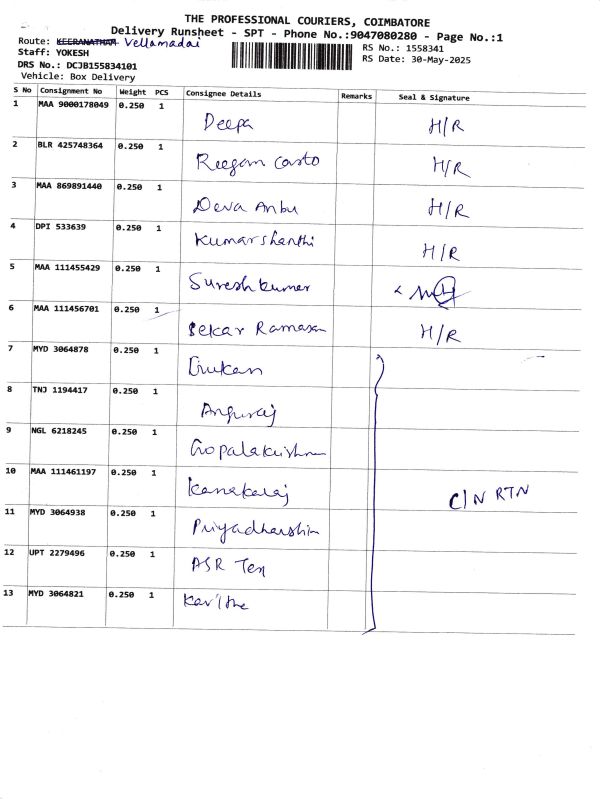 THE PROFESSIONAL COURIERS, COIMBATORE
Delivery Runsheet - SPT - Phone No.:9047080280 - Page No.:1
Route: KEERANATHAM Vellamadai
RS No.: 1558341
Staff: YOKESH
RS Date: 30-May-2025
DRS No.: DCJB155834101
Vehicle: Box Delivery
S No Consignment No Weight PCS Consignee Details Remarks Seal & Signature
1 MAA 9000178049 0.250 1 Deepa H/R
2 BLR 425748364 0.250 1 Reegan Casto H/R
3 MAA 869891440 0.250 1 Deva Anbu H/R
4 DPI 533639 0.250 1 Kumarshanthi H/R
5 MAA 111455429 0.250 1 Sureshkumar
6 MAA 111456701 0.250 1 Sekar Ramasam H/R
7 MYD 3064878 0.250 1
8 TNJ 1194417 0.250 1 Anguraj
9 NGL 6218245 0.250 1 Gopalakrishnan
10 MAA 111461197 0.250 1 Kanakaraj C/N RTN
11 MYD 3064938 0.250 1 Priyadharshin
12 UPT 2279496 0.250 1 ASR Tex
13 MYD 3064821 0.250 1 Kavitha